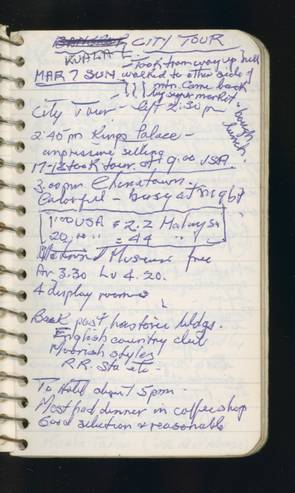 CITY TOUR
KUALA L
MAR 7 SUN
- Took tram way up hill
walked to other side of
mtn. Came back
by super market
Bought lunch.
City Tour - left 2:30 pm
2:40 pm Kings Palace -
impressive setting
took tour at 9:00 USA.
3:00 pm Chinatown.
Colorful - busy at night
1.00 USA = 2.2 Malaysi
20.00 " = 44 " "
National Museum free
Ar 3.30 Lv 4.20.
4 display rooms
Back past historic bldgs.
English country club
Moorish styles
R.R. Sta etc -
To Hotel about 5pm -
Most had dinner in coffee shop
Good selection & reasonable